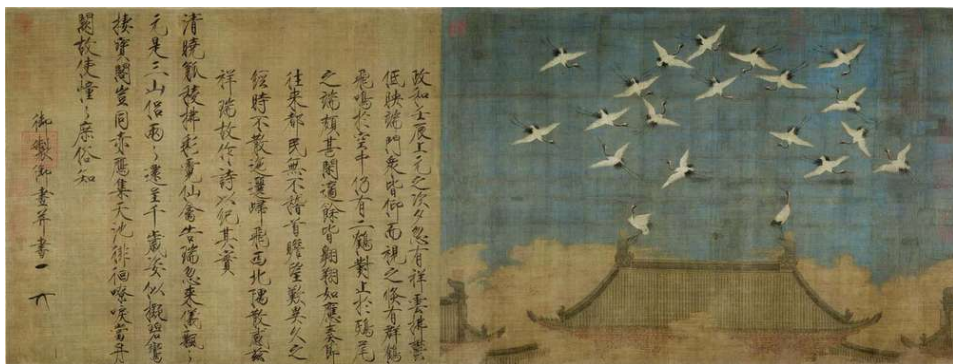 政和壬辰上元之次夕忽有祥雲拂鬱
低映端門衆皆仰而視之倏有群鶴
飛鳴於空中仍有二鶴對止於鴟尾
之端頗甚閑適餘皆翱翔如應奏節
往來都民無不稽首瞻望歎異久之
經時不散迤邐歸飛西北隅散感兹
祥瑞故作詩以紀其實
清曉觚稜拂彩霓仙禽告瑞忽來儀飄〻
元是三山侶兩〻還呈千歲姿似擬碧鸞
棲寶閣豈同赤鴈集天池徘徊嘹唳當丹
闕故使憧〻庶俗知
御製御畫并書